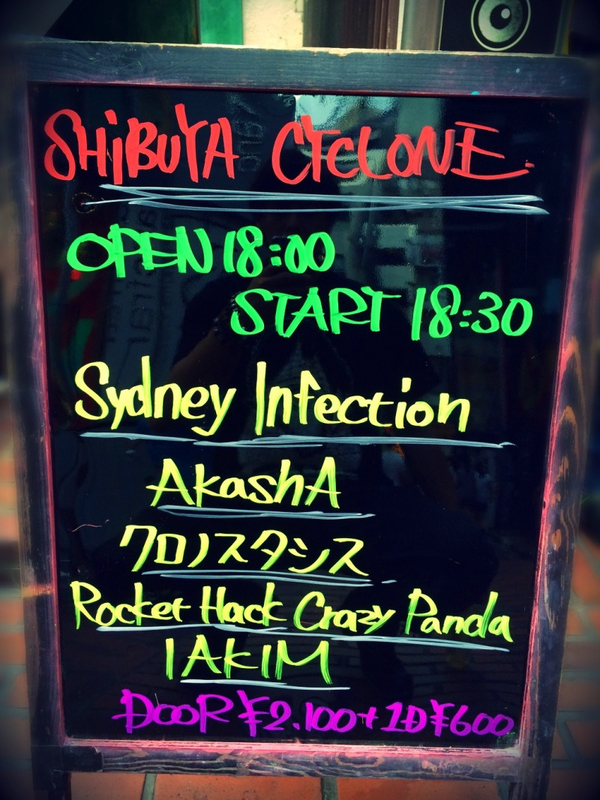 SHiBUYA CYCLONE.
OPEN 18:00
START 18:30
Sydney Infection
AkashA
クロノスタシス
Rocket Hack Crazy Panda
IAKIM
DOOR ¥2.100+1D¥600